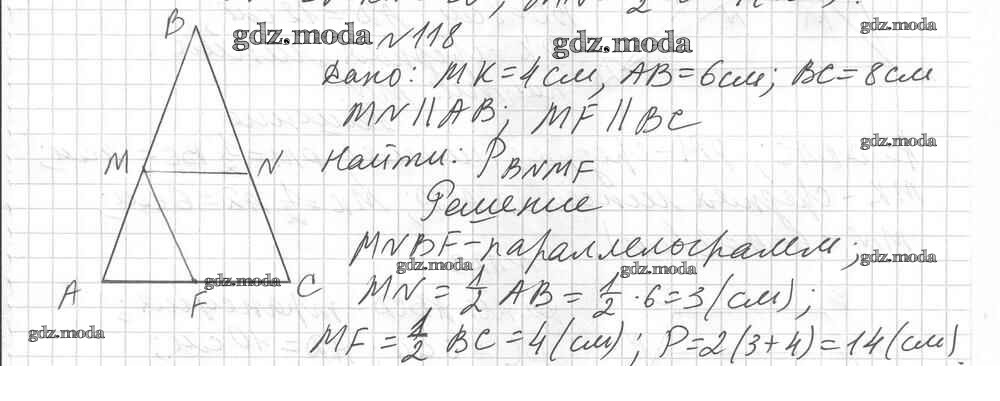 B
gdz.moda
№118
gdz.moda
gdz.moda
Дано: MK=4см, AB=6см; BC=8см
MN||AB; MF||BC
gdz.moda
M
N
Найти: P BNMF
Решение
MNBF-параллелограмм;
gdz.moda
gdz.moda
gdz.moda
A
F
gdz.moda
C
MN = 1/2 AB = 1/2 · 6 = 3 (см);
gdz.moda
MF = 1/2 BC = 4 (см); P=2(3+4)=14(см)